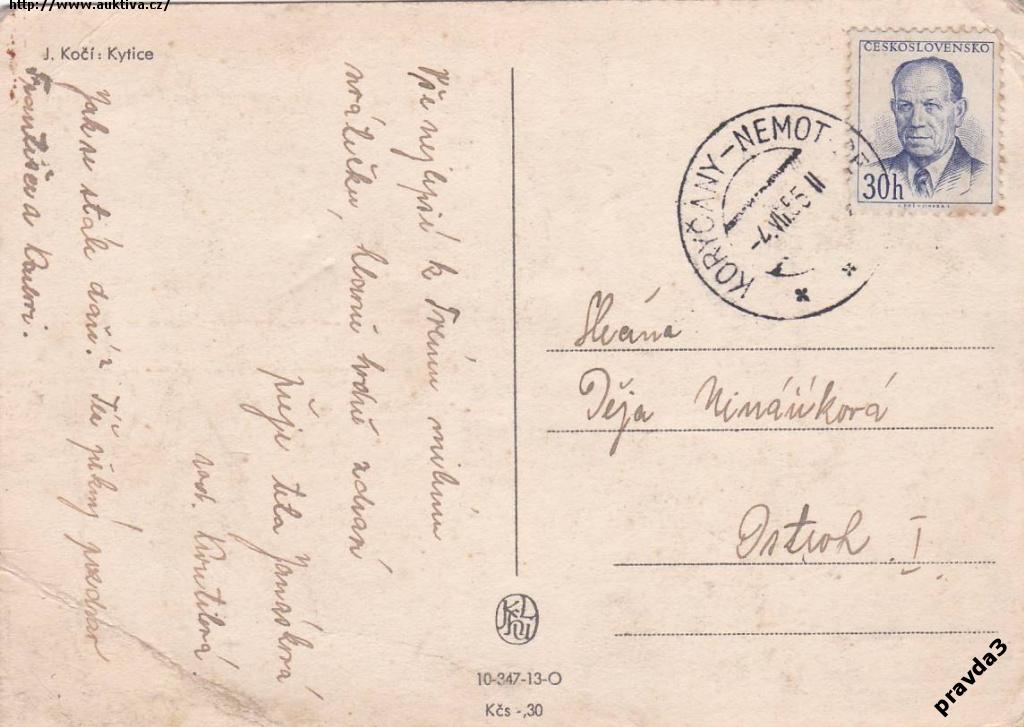 http://www.auktiva.cz/
J. Kočí: Kytice
Vše nejlepší k Tvému milému
svátečku, hlavně hodně zdraví
přeje teta Janásková
rod. Koutilová.
Jak se stále daří? Též pěkný pozdrav
a
ČESKOSLOVENSKO
30h
KORYČANY-NEMOT
-4.VII.55 II
Vážená
Děja
Ostroh I.
10-347-13-O
Kčs -,30
pravda3